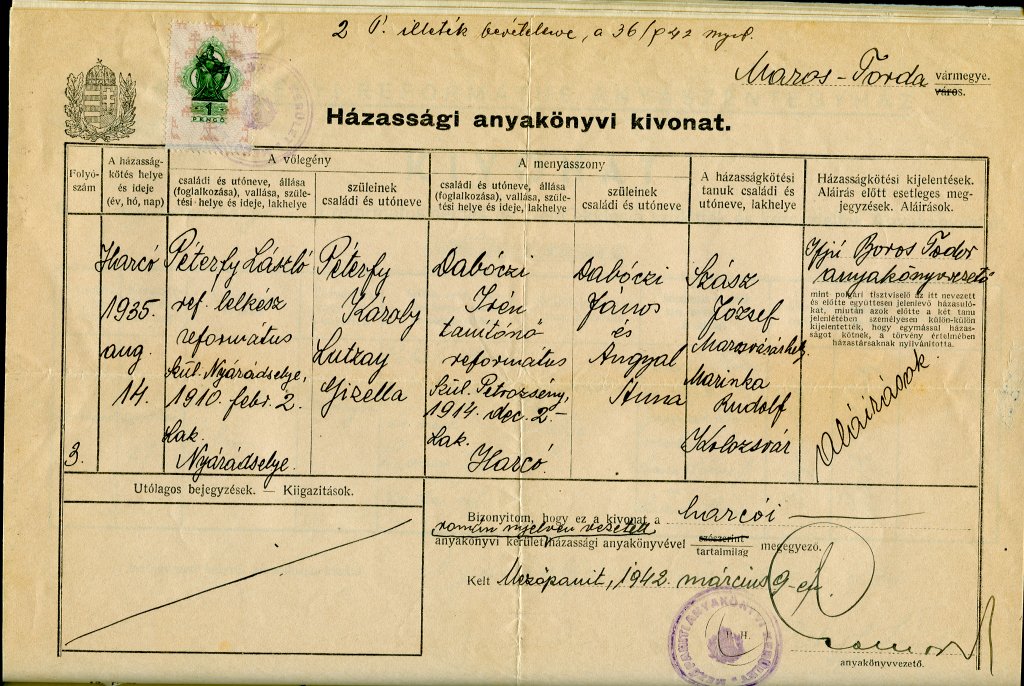 2 P. illeték bevételezve, a 36/P 42 nyil.
Maros-Torda vármegye.
város.
1
PENGŐ
Házassági anyakönyvi kivonat.
Folyó-
szám
A házasság-
kötés helye
és ideje
(év, hó, nap)
A vőlegény
családi és utóneve, állása
(foglalkozása), vallása, szüle-
tési helye és ideje, lakhelye
szüleinek
családi és utóneve
A menyasszony
családi és utóneve, állása
(foglalkozása), vallása, szüle-
tési helye és ideje, lakhelye
szüleinek
családi és utóneve
A házasságkötési
tanuk családi és
utóneve, lakhelye
Házasságkötési kijelentések.
Aláirás előtt esetleges meg-
jegyzések. Aláirások.
3.
Harcó
1935.
aug.
14.
Péterfy László
ref. lelkész
református
szül. Nyárádselye,
1910. febr. 2.
Lak.
Nyárádselye.
Péterfy
Károly
Lutzay
Gizella
Dabóczi
Irén
tanitónő
református
szül. Petrozsény,
1914. dec. 2-
Lak.
Harcó
Dabóczi
János
és
Angyal
Anna
Szász
József
Marosvásárhely.
Marinka
Rudolf
Kolozsvár
Ifjú Boros Todor
anyakönyvvezető
mint polgári tisztviselő az itt nevezett
és előtte együttesen jelenlévő házasuló-
kat, miután azok előtte a két tanu
jelenlétében személyesen külön-külön
kijelentették, hogy egymással házas-
ságot kötnek, a törvény értelmében
házastársaknak nyilvánitotta.
Aláirások
Utólagos bejegyzések. — Kiigazitások.
Bizonyitom, hogy ez a kivonat a harcói
román nyelven vezetett
anyakönyvi kerület házassági anyakönyvével szószerint megegyező.
tartalmilag
Kelt Mezőpanit, 1942. március 9-én.
P. H.
anyakönyvvezető.